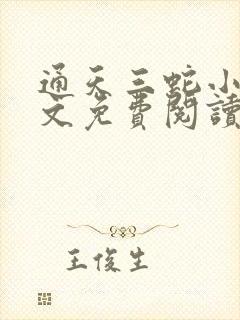 通天三蛇小
文免費閱讀
王俊生